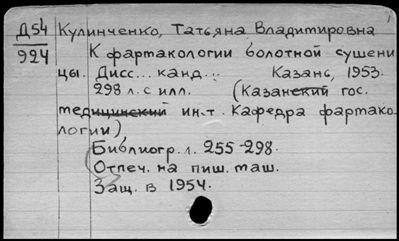 Д54 Кулинченко, Татьяна Владимировна
924 К фармакологии болотной сушени
цы. Дисс... канд... Казань, 1953.
298 л. с илл. (Казанский гос.
медицинский ин-т. Кафедра фармако
логии)
Библиогр. л. 255-298.
(Отпеч. на пиш. маш.
Защ. в 1954.